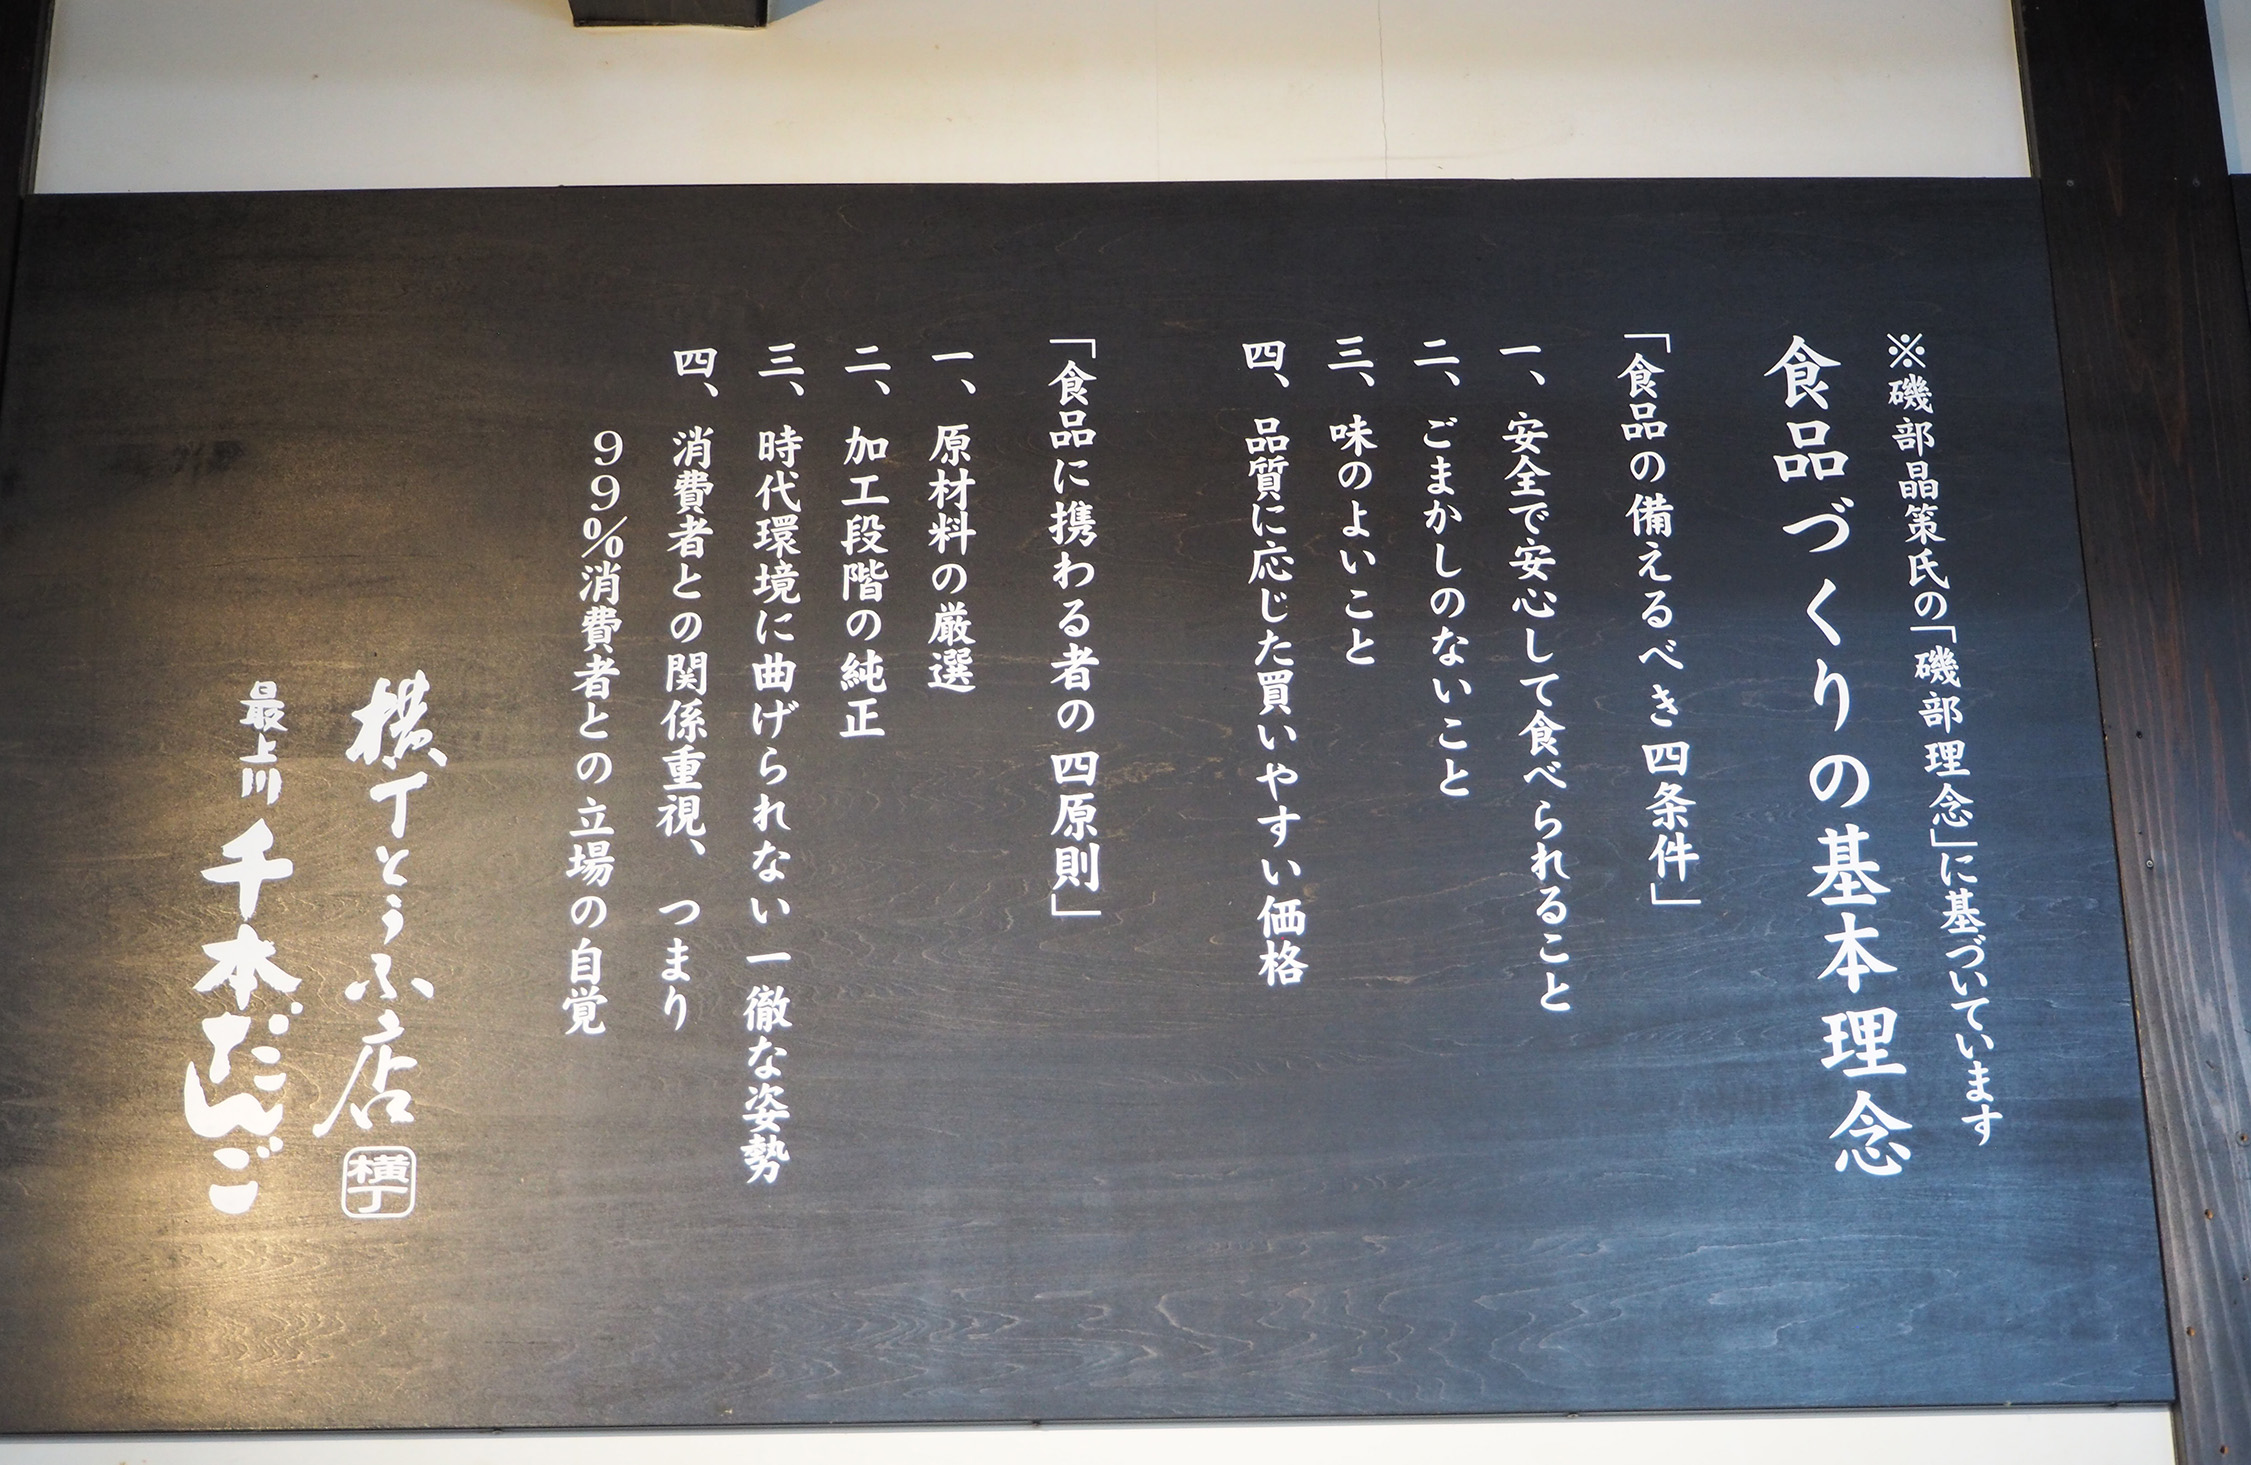 ※磯部晶策氏の「磯部理念」に基づいています
食品づくりの基本理念
「食品の備えるべき四条件」
一、安全で安心して食べられること
二、ごまかしのないこと
三、味のよいこと
四、品質に応じた買いやすい価格
「食品に携わる者の四原則」
一、原材料の厳選
二、加工段階の純正
三、時代環境に曲げられない一徹な姿勢
四、消費者との関係重視、つまり
99%消費者との立場の自覚
横丁とうふ店
横丁
最上川千本だんご